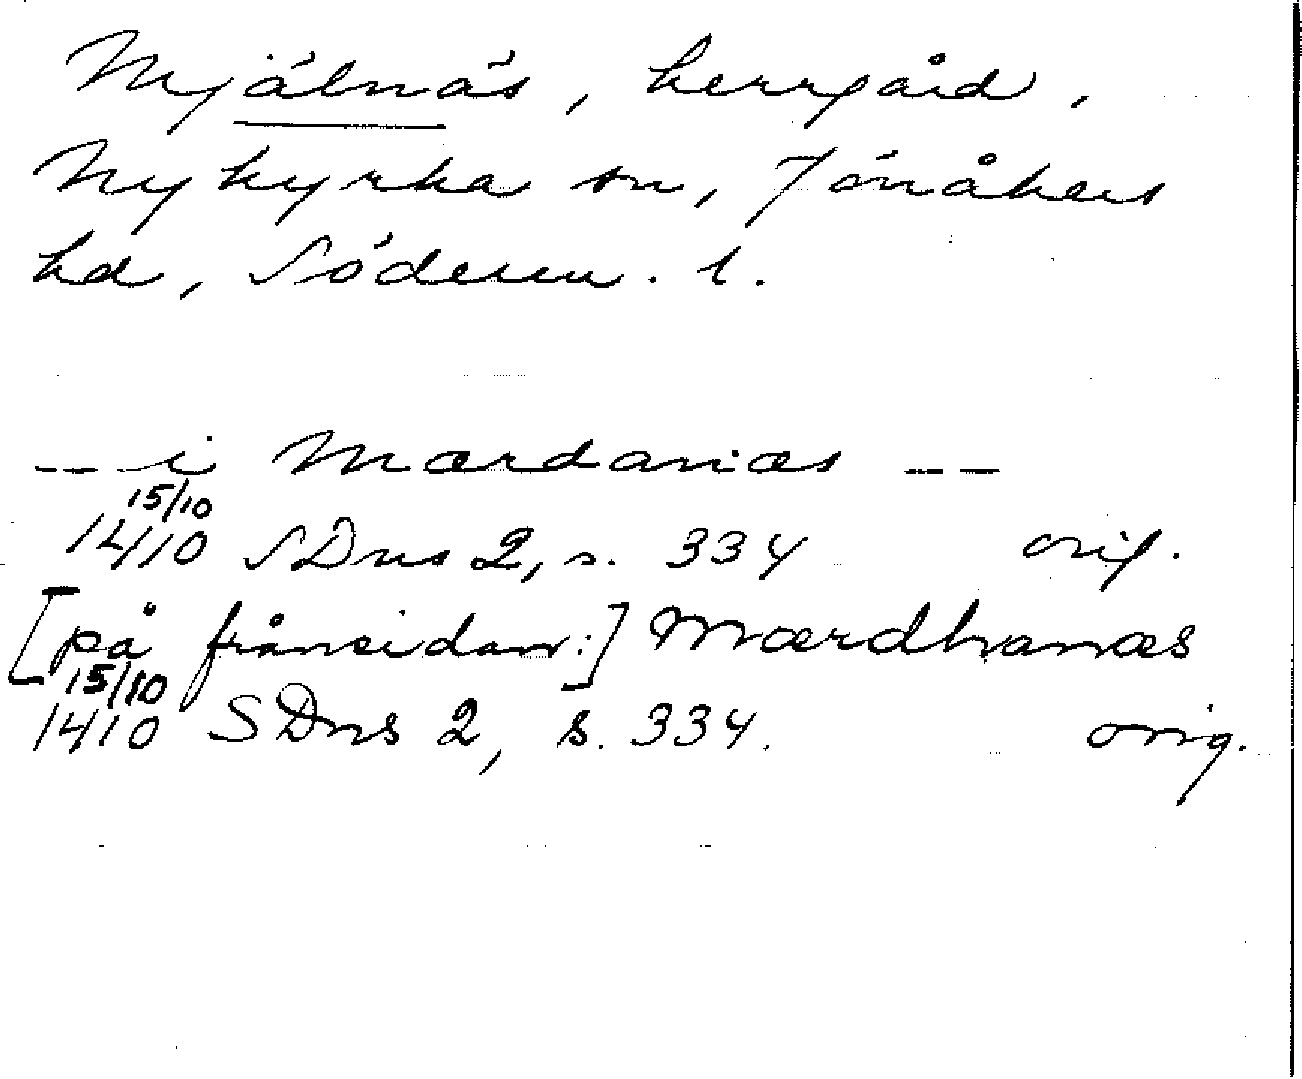 Mjälnäs, herrgård,
Nykyrka sn, Jönåkers
hd, Söderm. l.
-- i Mærdanæs --
15/10
1410 SDns 2, s. 334 orig.
[på frånsidan:] Mærdhanæs
15/10
1410 SDns 2, s. 334. orig.